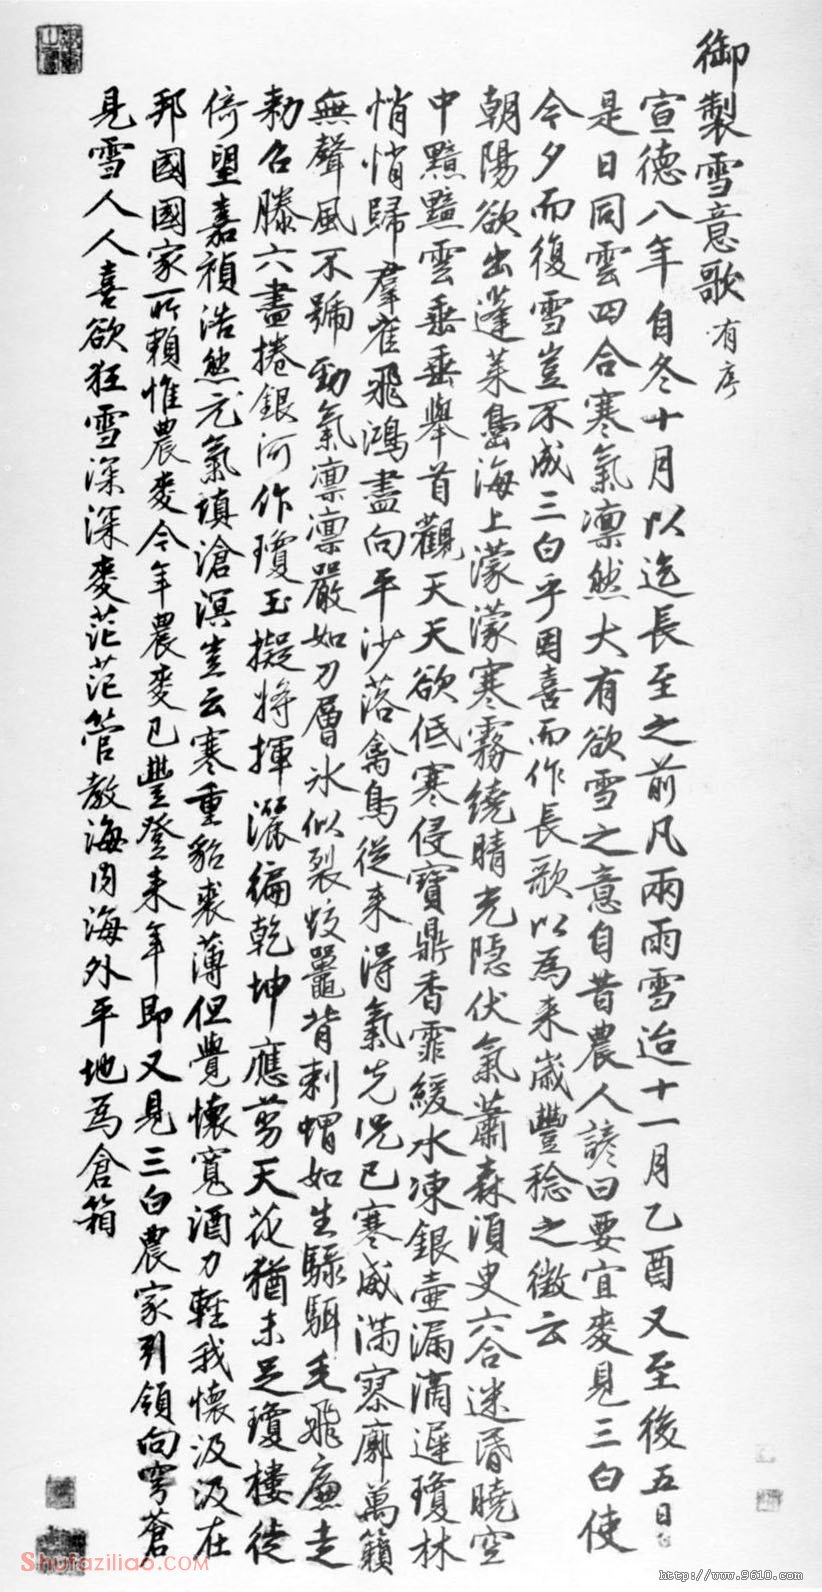 御製雪意歌 有序
宣德八年自冬十月以迄長至之前凡兩雨雪迨十一月乙酉又至後五日也
是日同雲四合寒氣凛然大有欲雪之意自昔農人諺曰要宜麥見三白使
今夕而復雪豈不成三白乎因喜而作長歌以為來歲豐稔之徵云
朝陽欲出蓬萊島海上濛濛寒霧繞晴光隱伏氣蕭森須臾六合迷昏曉空
中黯黯雲垂垂舉首觀天天欲低寒侵寶鼎香霏緩水凍銀壺漏滴遲瓊林
悄悄歸羣雀飛鴻盡向平沙落禽鳥從來得氣先況已寒威滿寥廓萬籟
無聲風不號勁氣凛凛嚴如刀層冰似裂蛟鼉背刺蝟如生騄駬毛飛廉走
勅召滕六盡捲銀河作瓊玉擬將揮灑徧乾坤應剪天花猶未足瓊樓徙
倚望嘉禎浩然元氣填滄溟豈云寒重貂裘薄但覺懷寬酒力輕我懷汲汲在
邦國國家所賴惟農麥今年農麥已豐登來年即又見三白農家引領向穹蒼
見雪人人喜欲狂雪深深麥茫茫管教海內海外平地為倉箱
Shufaziliao.COM
http://www.9610.com